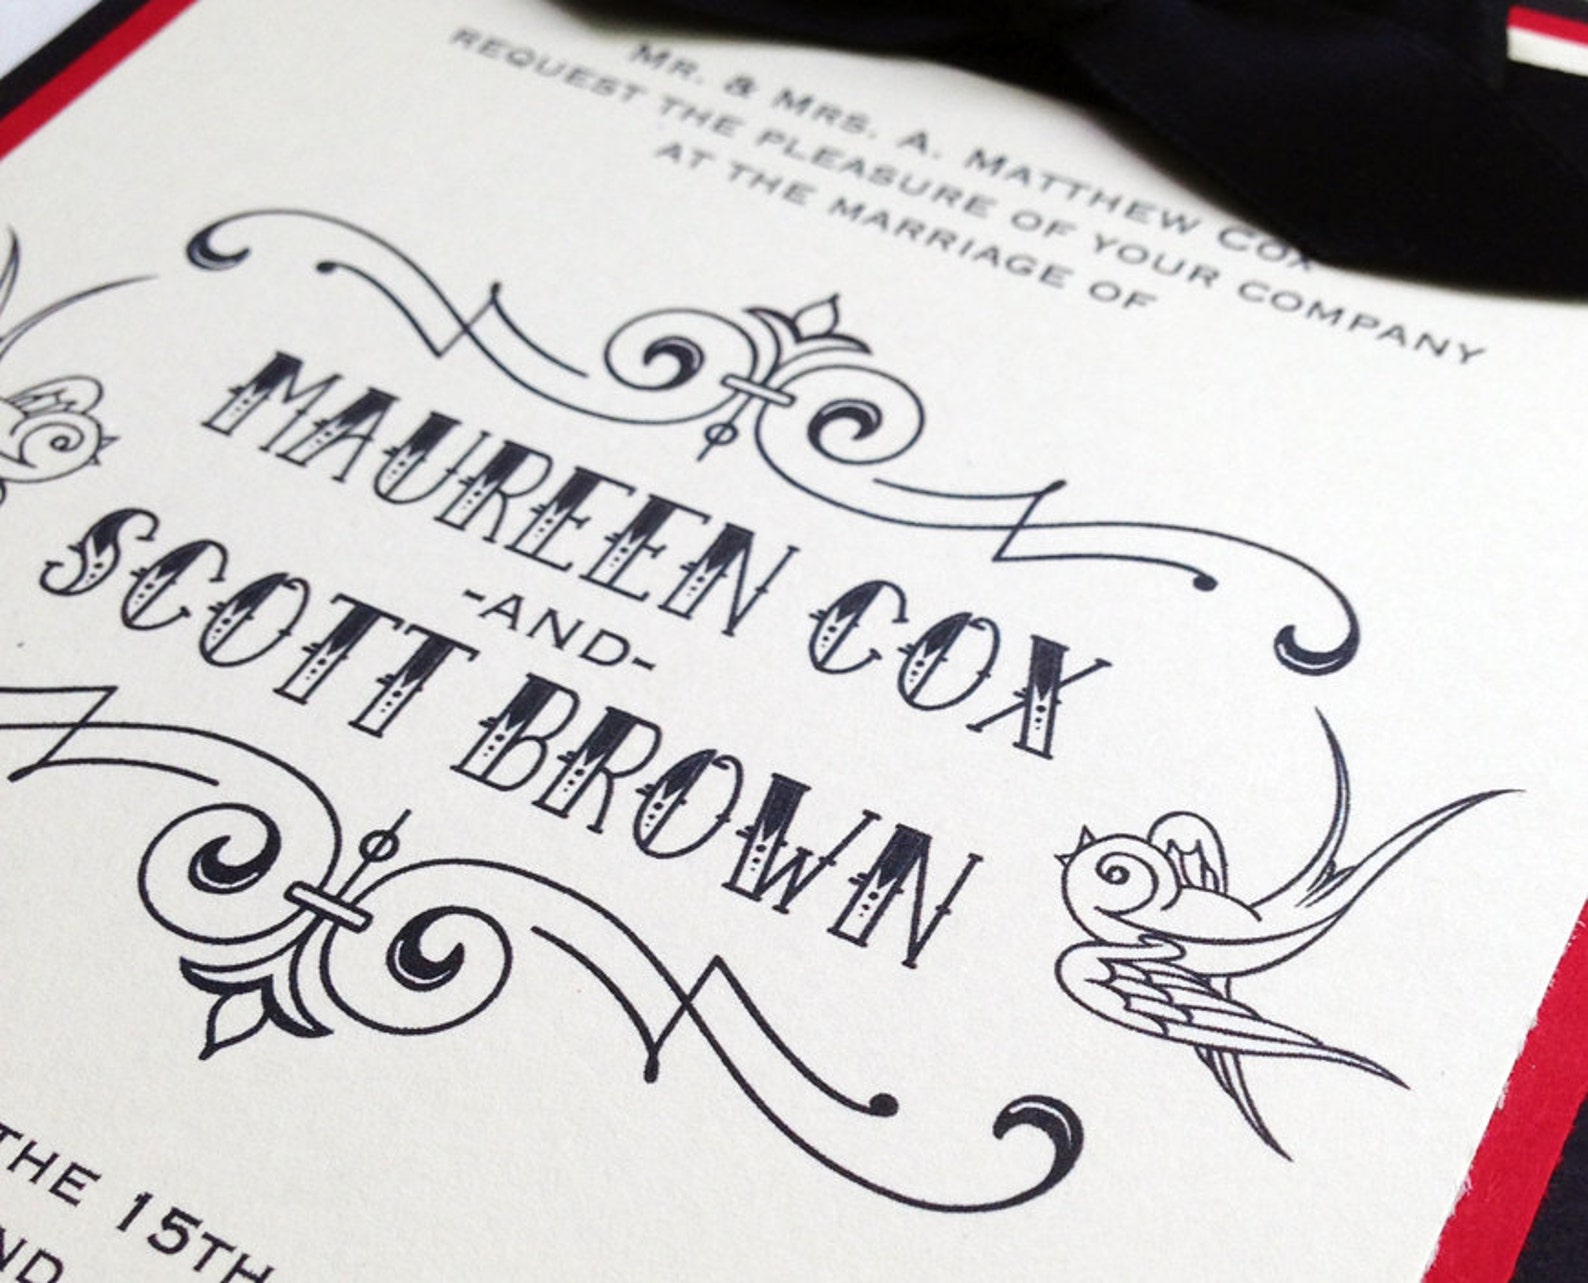 MR. & MRS. A. MATTHEW COX
REQUEST THE PLEASURE OF YOUR COMPANY
AT THE MARRIAGE OF
MAUREEN COX
-AND-
SCOTT BROWN
THE 15TH